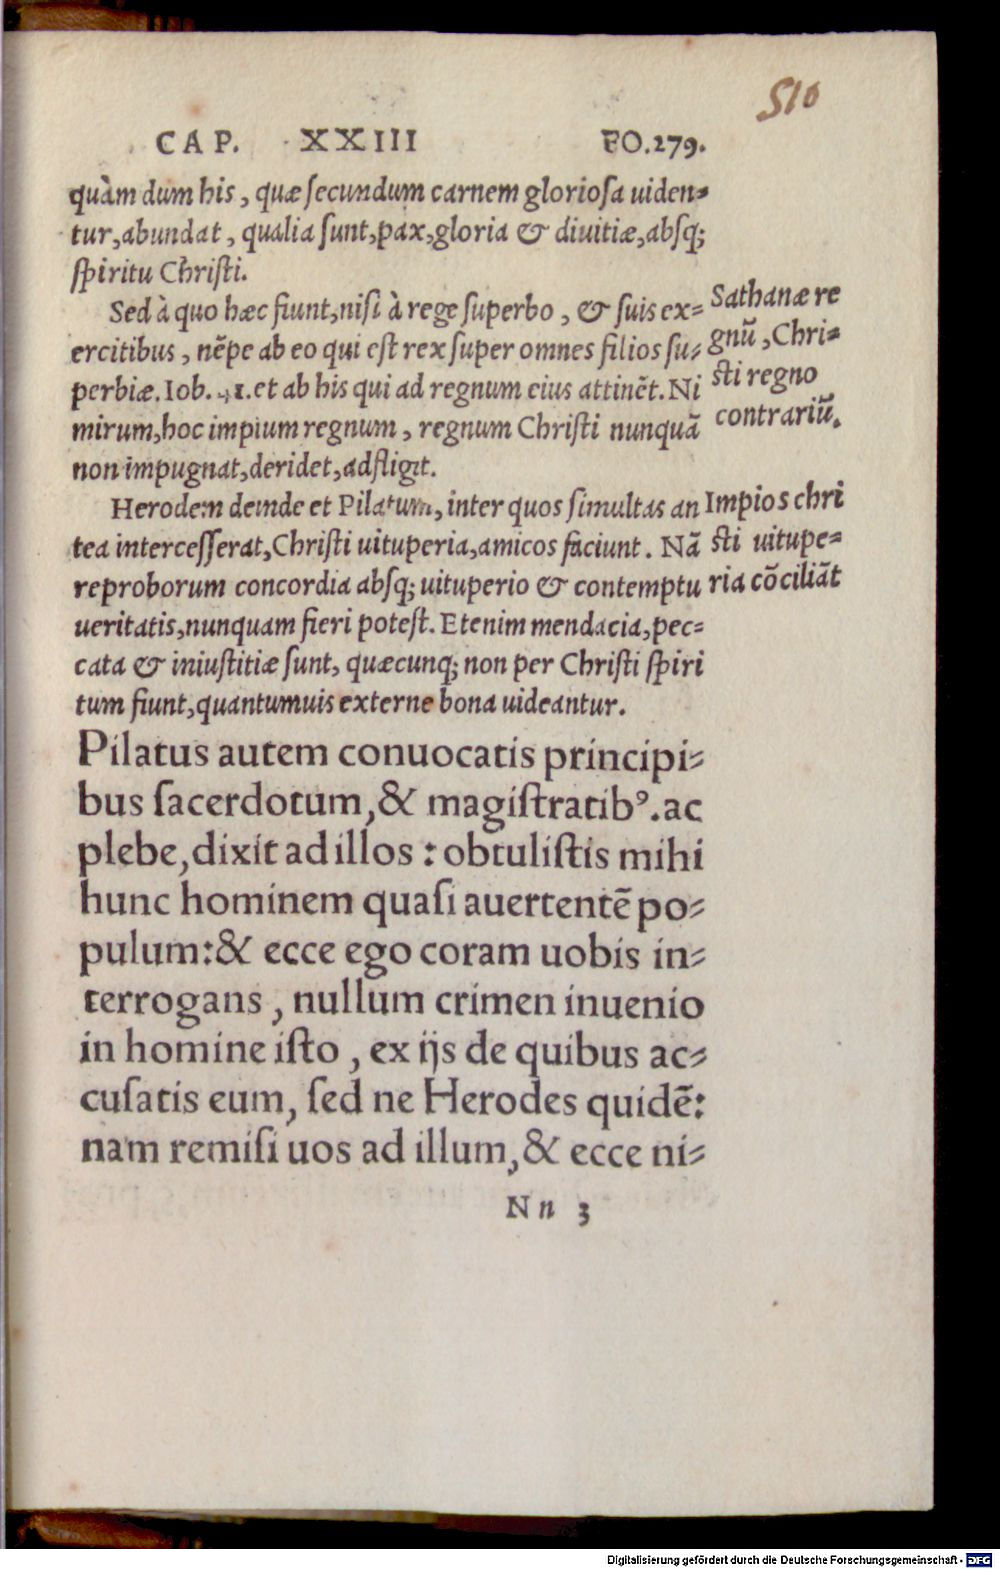 510
CAP. XXIII FO.279.
quàm dum his, quæ secundum carnem gloriosa uiden-
tur,abundat, qualia sunt,pax,gloria & diuitiæ,absq;
spiritu Christi.
Sed à quo hæc fiunt,nisi à rege superbo, & suis ex-
ercitibus, nẽpe ab eo qui est rex super omnes filios su-
perbiæ. Iob. 41. et ab his qui ad regnum eius attinẽt. Ni
mirum,hoc impium regnum, regnum Christi nunquã
non impugnat,deridet,adfligit.
Sathanæ re
gnũ, Chri-
sti regno
contrariũ.
Herodem deinde et Pilatum, inter quos simultas an
tea intercesserat,Christi uituperia,amicos faciunt. Nã
reproborum concordia absq; uituperio & contemptu
ueritatis,nunquam fieri potest. Etenim mendacia,pec-
cata & iniustitiæ sunt, quæcunq; non per Christi spiri
tum fiunt,quantumuis externe bona uideantur.
Impios chri
sti uitupe-
ria cõciliãt
Pilatus autem conuocatis principi-
bus sacerdotum,& magistratibꝰ.ac
plebe,dixit ad illos : obtulistis mihi
hunc hominem quasi auertentẽ po-
pulum:& ecce ego coram uobis in-
terrogans, nullum crimen inuenio
in homine isto, ex ijs de quibus ac-
cusatis eum, sed ne Herodes quidẽ:
nam remisi uos ad illum,& ecce ni-
Nn 3
Digitalisierung gefördert durch die Deutsche Forschungsgemeinschaft - DFG